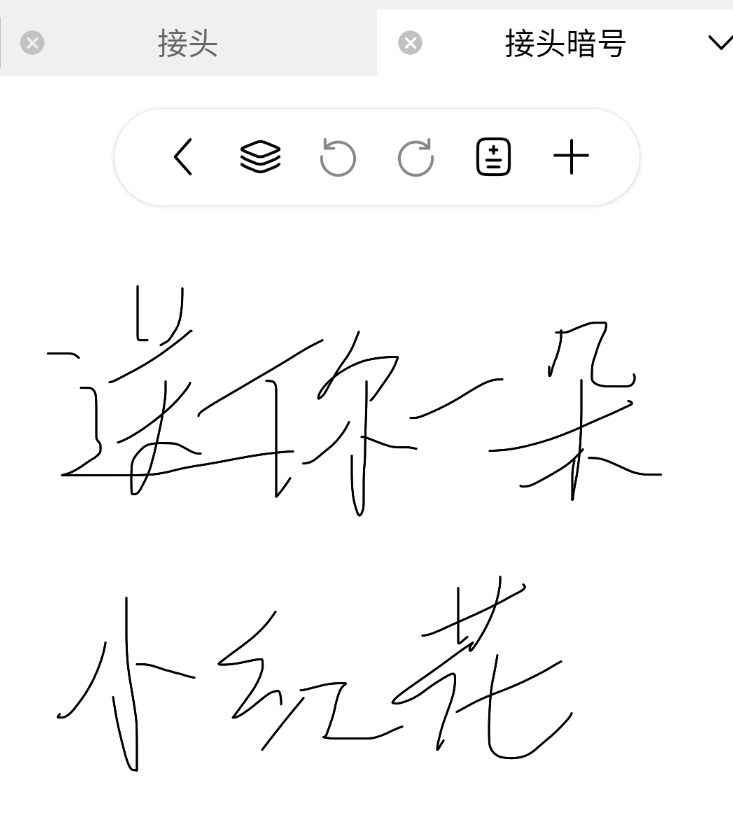 接头 接头暗号
送你一朵
小红花